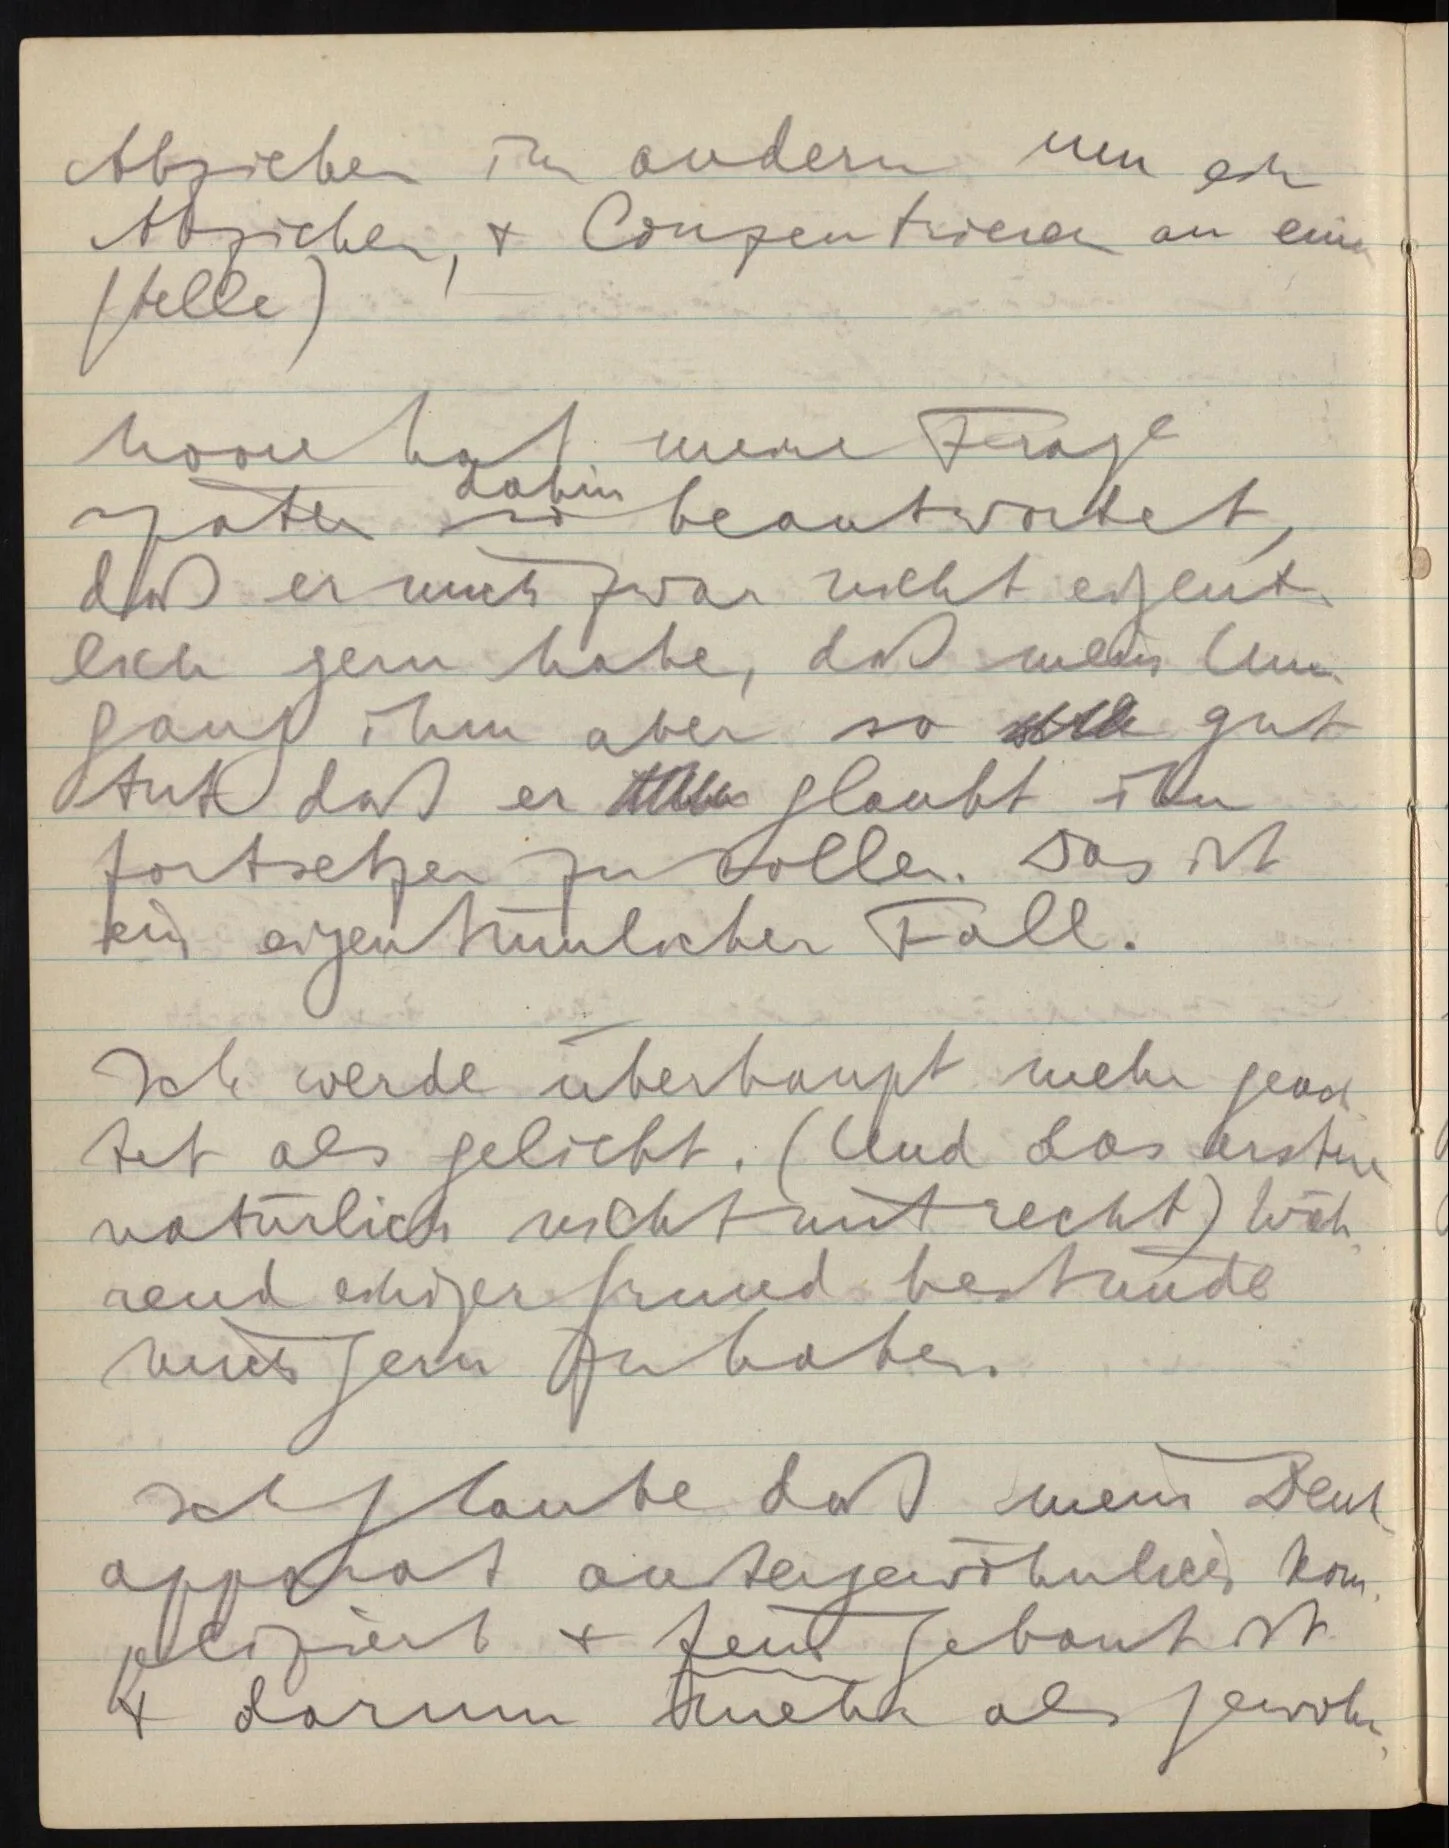 Abziehen im andern um ein
Abziehen, & Conzentrieren an einer
Stelle)
Moore hat meine Frage
später dahin beantwortet,
daß er mich zwar nicht eigent-
lich gern habe, daß mein Um-
gang ihm aber so gut
tut daß er glaubt ihn
fortsetzen zu sollen. Das ist
ein eigentümlicher Fall.
Ich werde überhaupt mehr geach-
tet als geliebt. (Und das erstere
natürlich nicht mit recht) wäh-
rend einiger Grund bestünde
mich gern zu haben.
Ich glaube daß mein Denk-
apparat außergewöhnlich kom-
pliziert & fein gebaut ist
& darum mehr als gewöhn-